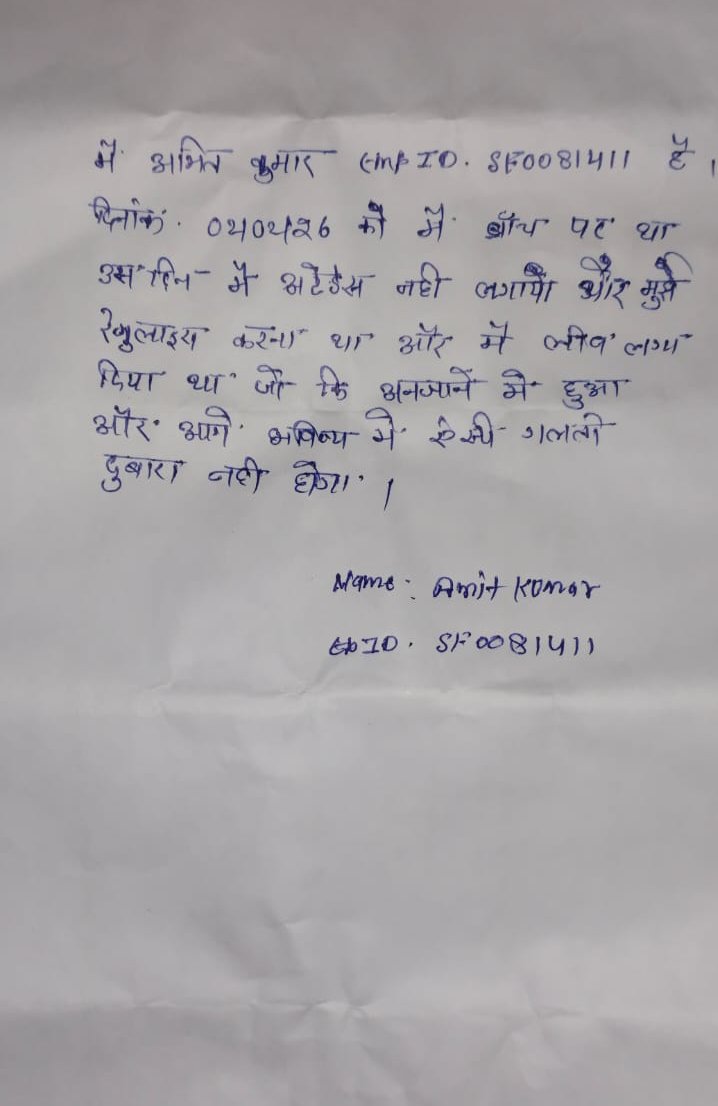 मैं अमित कुमार Emp ID. SF0081411 है।
दिनांक. 040426 को मैं ब्रॉच पर था
उस दिन मैं अटेडेंस नही लगाया और मुझे
रेगुलाइय करना था और मैं लीव लगा
दिया था जो कि अनजाने में हुआ
और आगे भविष्य में ऐसी गलती
दुबारा नही होगा।
Name: Amit Kumar
ID. SF0081411